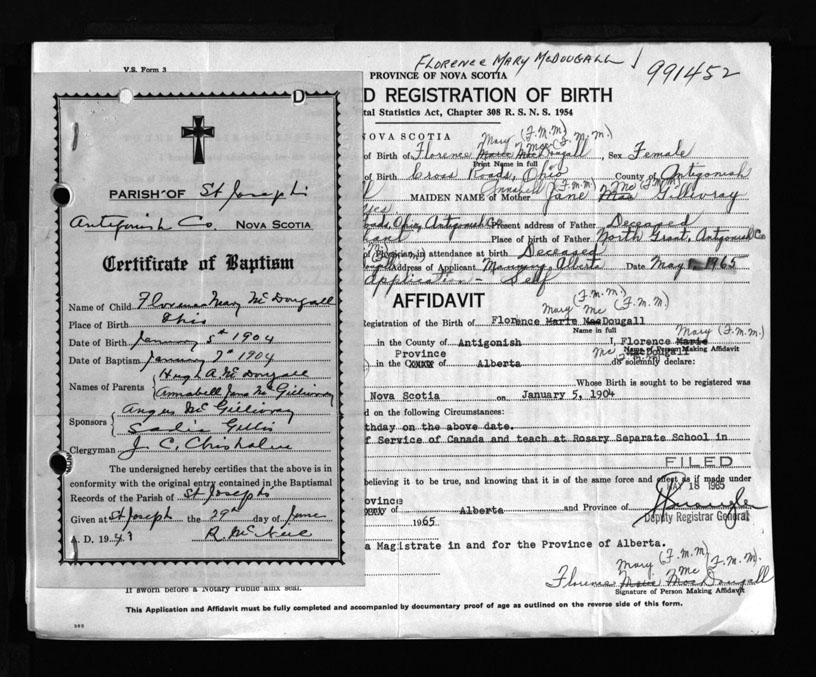 V.S. Form 3
FLORENCE MARY MCDOUGALL
991452
PROVINCE OF NOVA SCOTIA
D REGISTRATION OF BIRTH
tal Statistics Act, Chapter 308 R. S. N. S. 1954
D
PARISH OF St Josephs
Antigonish Co. NOVA SCOTIA
Certificate of Baptism
Name of Child Florence Mary McDougall
Place of Birth Ohio
Date of Birth January 5th 1904
Date of Baptism January 7th 1904
Names of Parents { Hugh A. McDougall
Annabell Jane McGillivray
Sponsors { Angus McGillivray
Sadie Gillis
Clergyman J. C. Chisholm
The undersigned hereby certifies that the above is in
conformity with the original entry contained in the Baptismal
Records of the Parish of St Josephs
Given at St Joseph the 29th day of June
A. D. 1943
NOVA SCOTIA
Mary (F.M.M) Mc (F.M.M.)
of Birth of Florence Marie MacDougall, Sex Female
Print Name in full
of Birth Cross Roads, Ohio County of Antigonish
Annabell (F.M.M) Mc (F.M.M)
MAIDEN NAME of Mother Jane Mac Gillivray
yes
oads, Ohio, Antigonish Co Present address of Father Deceased
Place of birth of Father North Grant, Antigonish Co
of Physician, in attendance at birth Deceased
Address of Applicant Alberta Date May 1, 1965
Application Self
AFFIDAVIT
Mary Mc (F.M.M.) (F.M.M.)
Registration of the Birth of Florence Marie MacDougall
Name in full
Mary (F.M.M.)
in the County of Antigonish I, Florence Marie
Mc MacDougall
Name of Person Making Affidavit
Province
in the County of Alberta do solemnly declare:
Whose Birth is sought to be registered was
Nova Scotia on January 5, 1904
d on the following Circumstances:
thday on the above date.
f Service of Canada and teach at Rosary Separate School in
FILED
believing it to be true, and knowing that it is of the same force and effect as if made under
MAY 18 1965
ovince
of Alberta and Province of
Deputy Registrar General
1965
a Magistrate in and for the Province of Alberta.
Mary (F.M.M) Mc F.M.M.
Florence Marie MacDougall
Signature of Person Making Affidavit
If sworn before a Notary Public affix seal.
This Application and Affidavit must be fully completed and accompanied by documentary proof of age as outlined on the reverse side of this form.